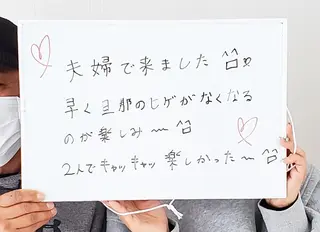 夫婦で来ました
早く旦那のヒゲがなくなる
のが楽しみ〜
2人でキャッキャッ楽しかった〜